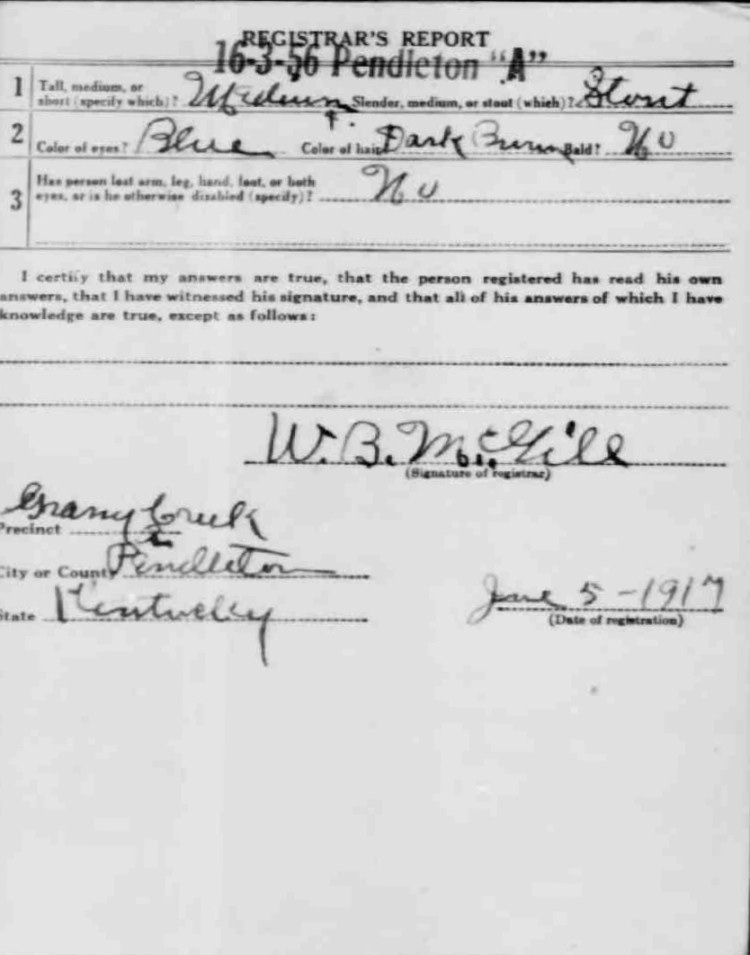 REGISTRAR'S REPORT
16-3-56 Pendleton "A"
1 Tall, medium, or short (specify which)? Medium Slender, medium, or stout (which)? Stout
2 Color of eyes? Blue Color of hair? Dark Brown Bald? No
3 Has person lost arm, leg, hand, foot, or both
eyes, or is he otherwise disabled (specify)? No
I certify that my answers are true, that the person registered has read his own
answers, that I have witnessed his signature, and that all of his answers of which I have
knowledge are true, except as follows:
W. B. McGill
(Signature of registrar)
Precinct Grassy Creek
City or County Pendleton
State Kentucky
June 5-1917
(Date of registration)